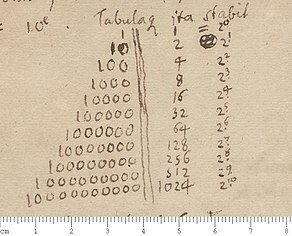 Tabula ita stabit
1 1 2⁰
10 2 2¹
100 4 2²
1000 8 2³
10000 16 2⁴
100000 32 2⁵
1000000 64 2⁶
10000000 128 2⁷
100000000 256 2⁸
1000000000 512 2⁹
10000000000 1024 2¹⁰
cm 1 2 3 4 5 6 7 8